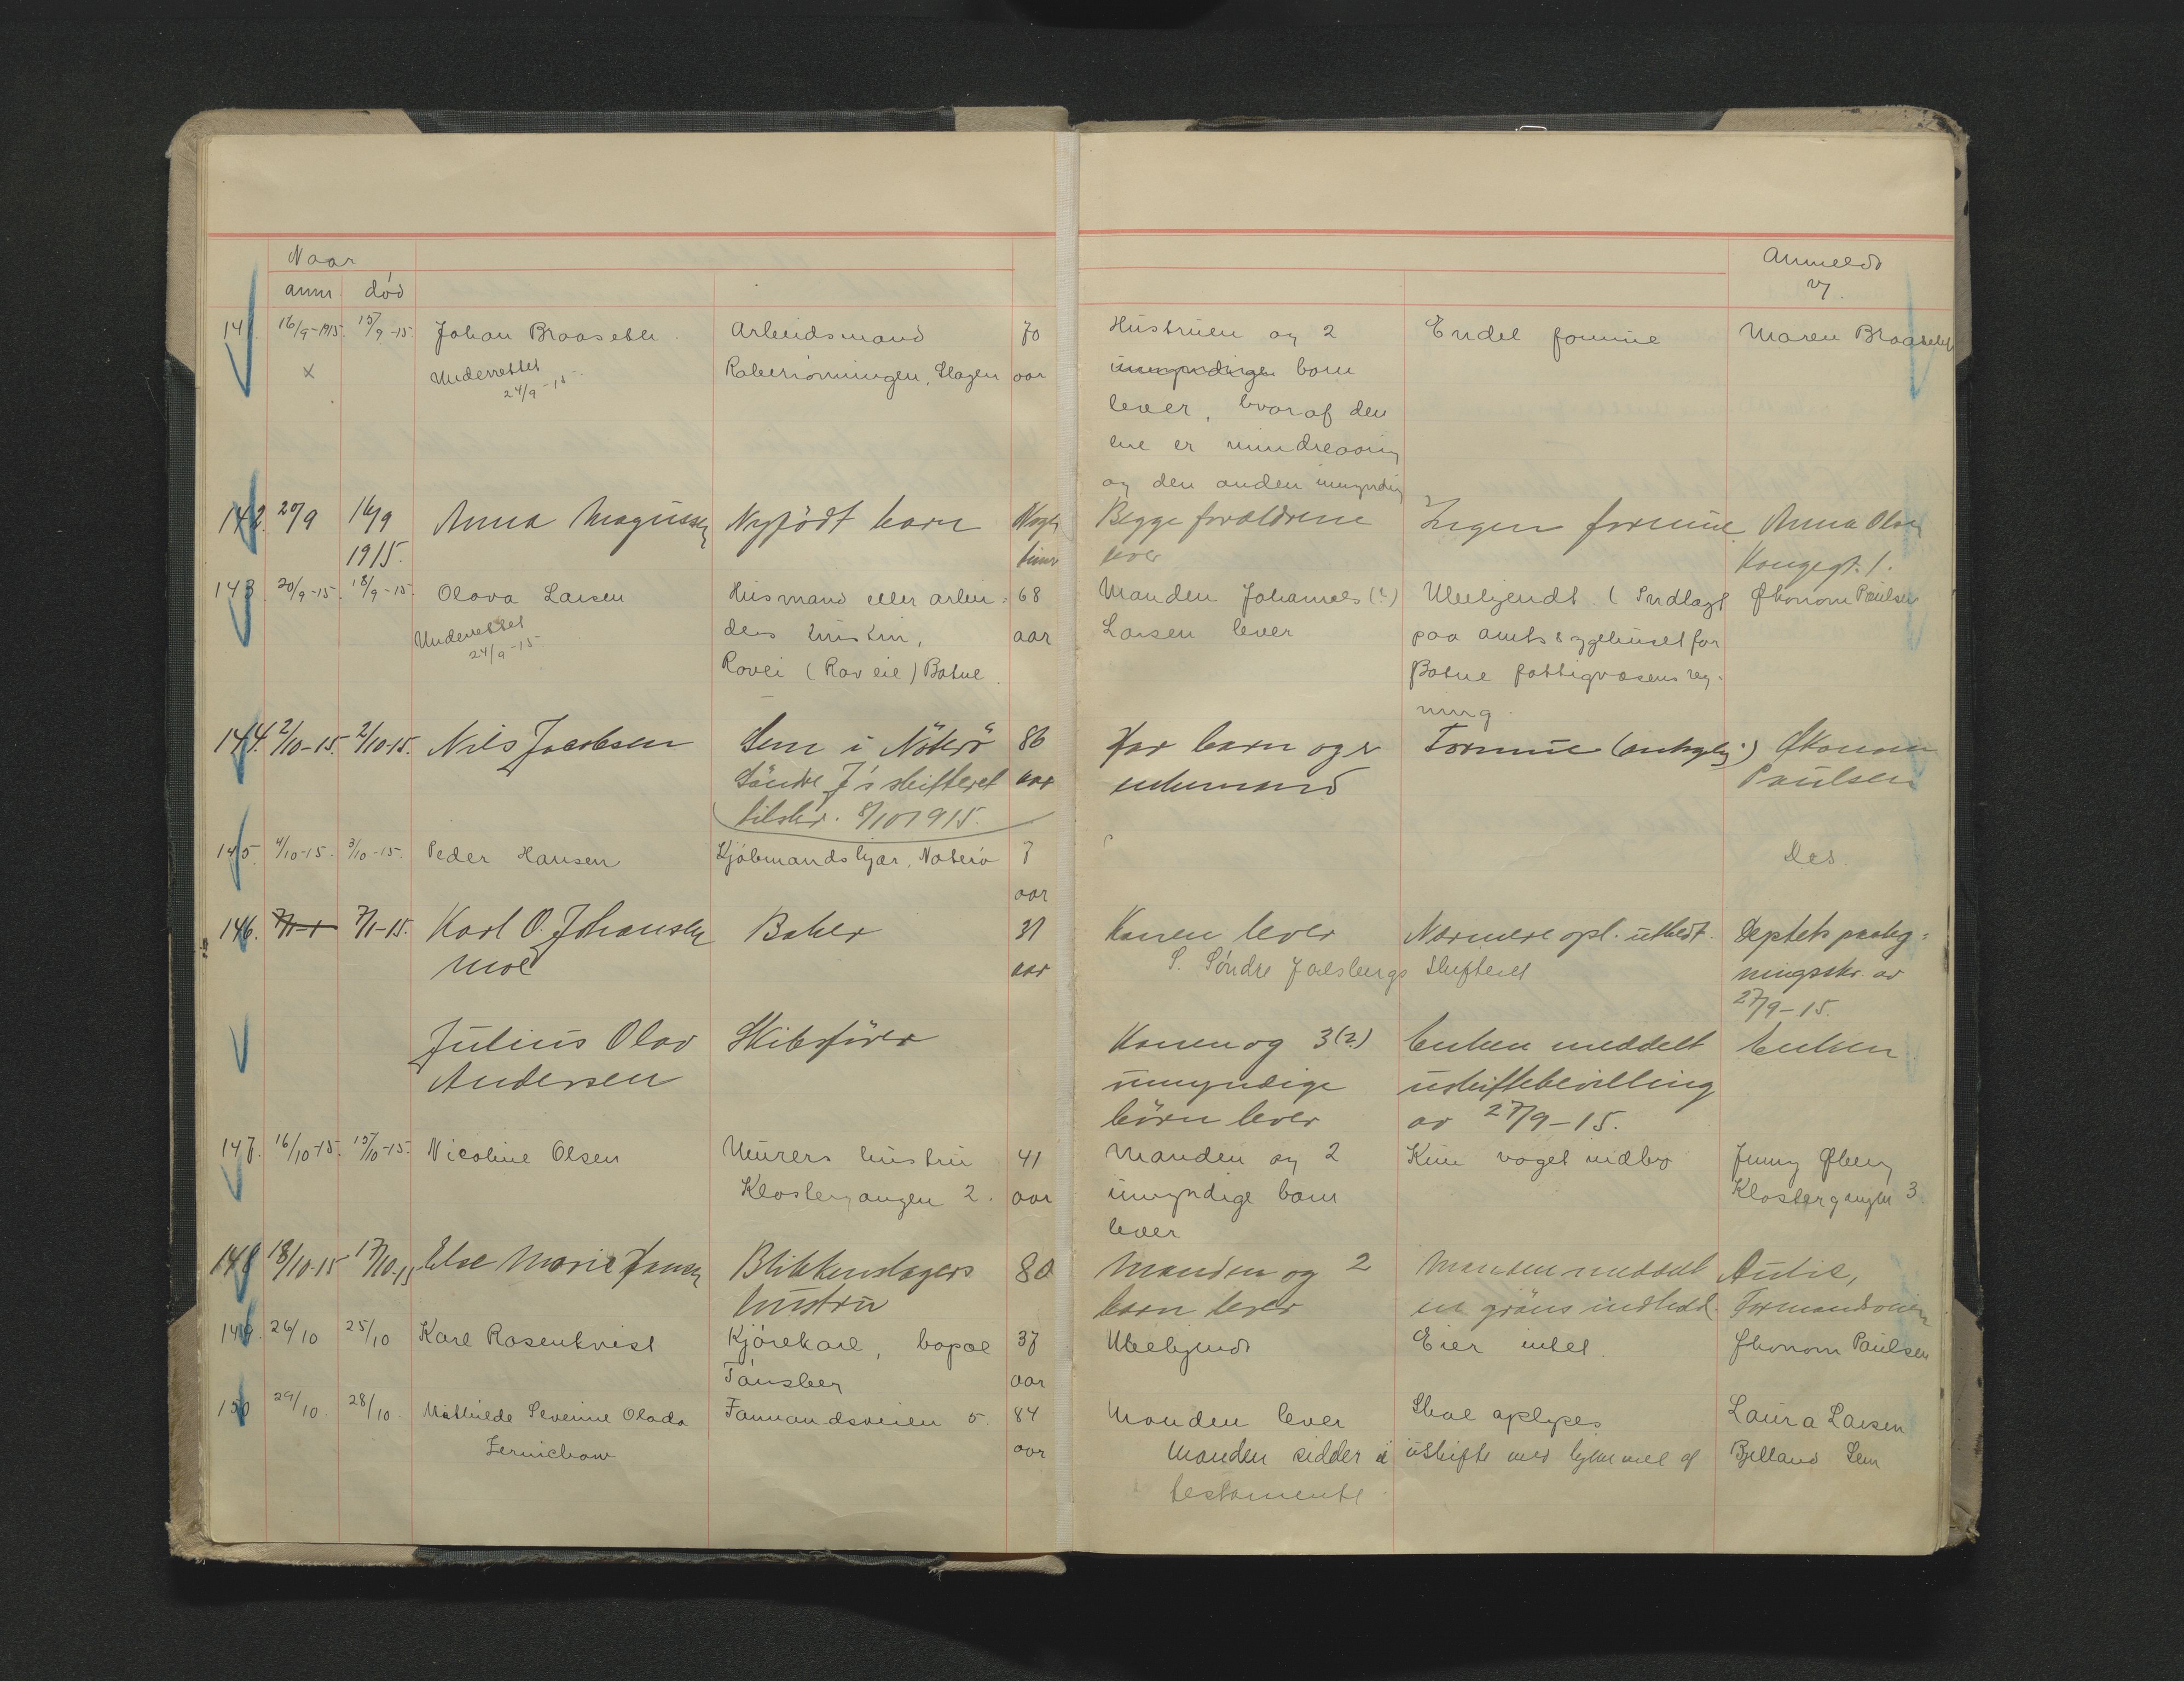 Naar
anm. død
Anmeldt
av
141 16/9-1915. 15/9-15. Johan Braaseth. Arbeidsmand 70 Hustruen og 2 Endel formue Maren Braaseth
x Underrettet Slagen aar umyndige barn
24/9-15. lever, hvoraf den
ene er mindreaarig
og den anden umyndig
142. 20/9 16/9 Anna Magnussen Nyfödt barn Nogle Begge forældrene Ingen formue Anna Olsen
1915. timer lever Kongegt. 1.
143 20/9-15. 18/9-15. Olava Larsen Husmand eller arbei- 68 Manden Johannes (?) Ubekjendt. (Indlagt Økonom Paulsen
Underrettet ders hustru, aar Larsen lever paa amtssygehuset for
24/9-15. Rovei (Raveie) Botne. Botne fattigvæsens reg-
ning.
144. 2/10-15. 2/10-15. Nils Jacobsen Sem i Nöterö 86 Har barn og er Formue (antagelig) Økonom
Söndre J's skifteret aar enkemand Paulsen
tilskr. 8/10 1915.
145. 4/10-15. 3/10-15. Peder Hansen Kjøbmandskjær, Nøterø 7 Des.
aar
146. 7/1-15. Karl O. Johansen Baker 31 Konen lever Nærmere opl. utbedt. Deptets paateg-
Moe aar S. Søndre Jarlsbergs Skifteret ningsskr. av
27/9-15.
Julius Olav Skibsförer Konen og 3(?) Enken meddelt Enken
Andersen umyndige uskiftebevilling
börn lever av 27/9-15.
147. 16/10-15. 15/10-15. Nicoline Olsen Murers hustru 41 Manden og 2 Kun noget indbo Jenny Øberg
Klostergangen 2. aar umyndige barn Klostergangen 3
lever
148 18/10-15 17/10-15 Else Marie Jensen Blikkenslagers 80 Manden og 2 Manden meddelt
hustru barn lever Formandsveien
149 26/10 25/10 Karl Rosenkvist Kjørekarl, bopæl 37 Ubekjendt Eier intet. Økonom Paulsen
Tønsberg aar
150 29/10. 28/10 Mathilde Severine Olada Farmandsveien 5. 84 Manden lever Skal oplyses Laura Larsen
aar Manden sidder i uskifte med hjemmel af Bjelland Sem
testamente